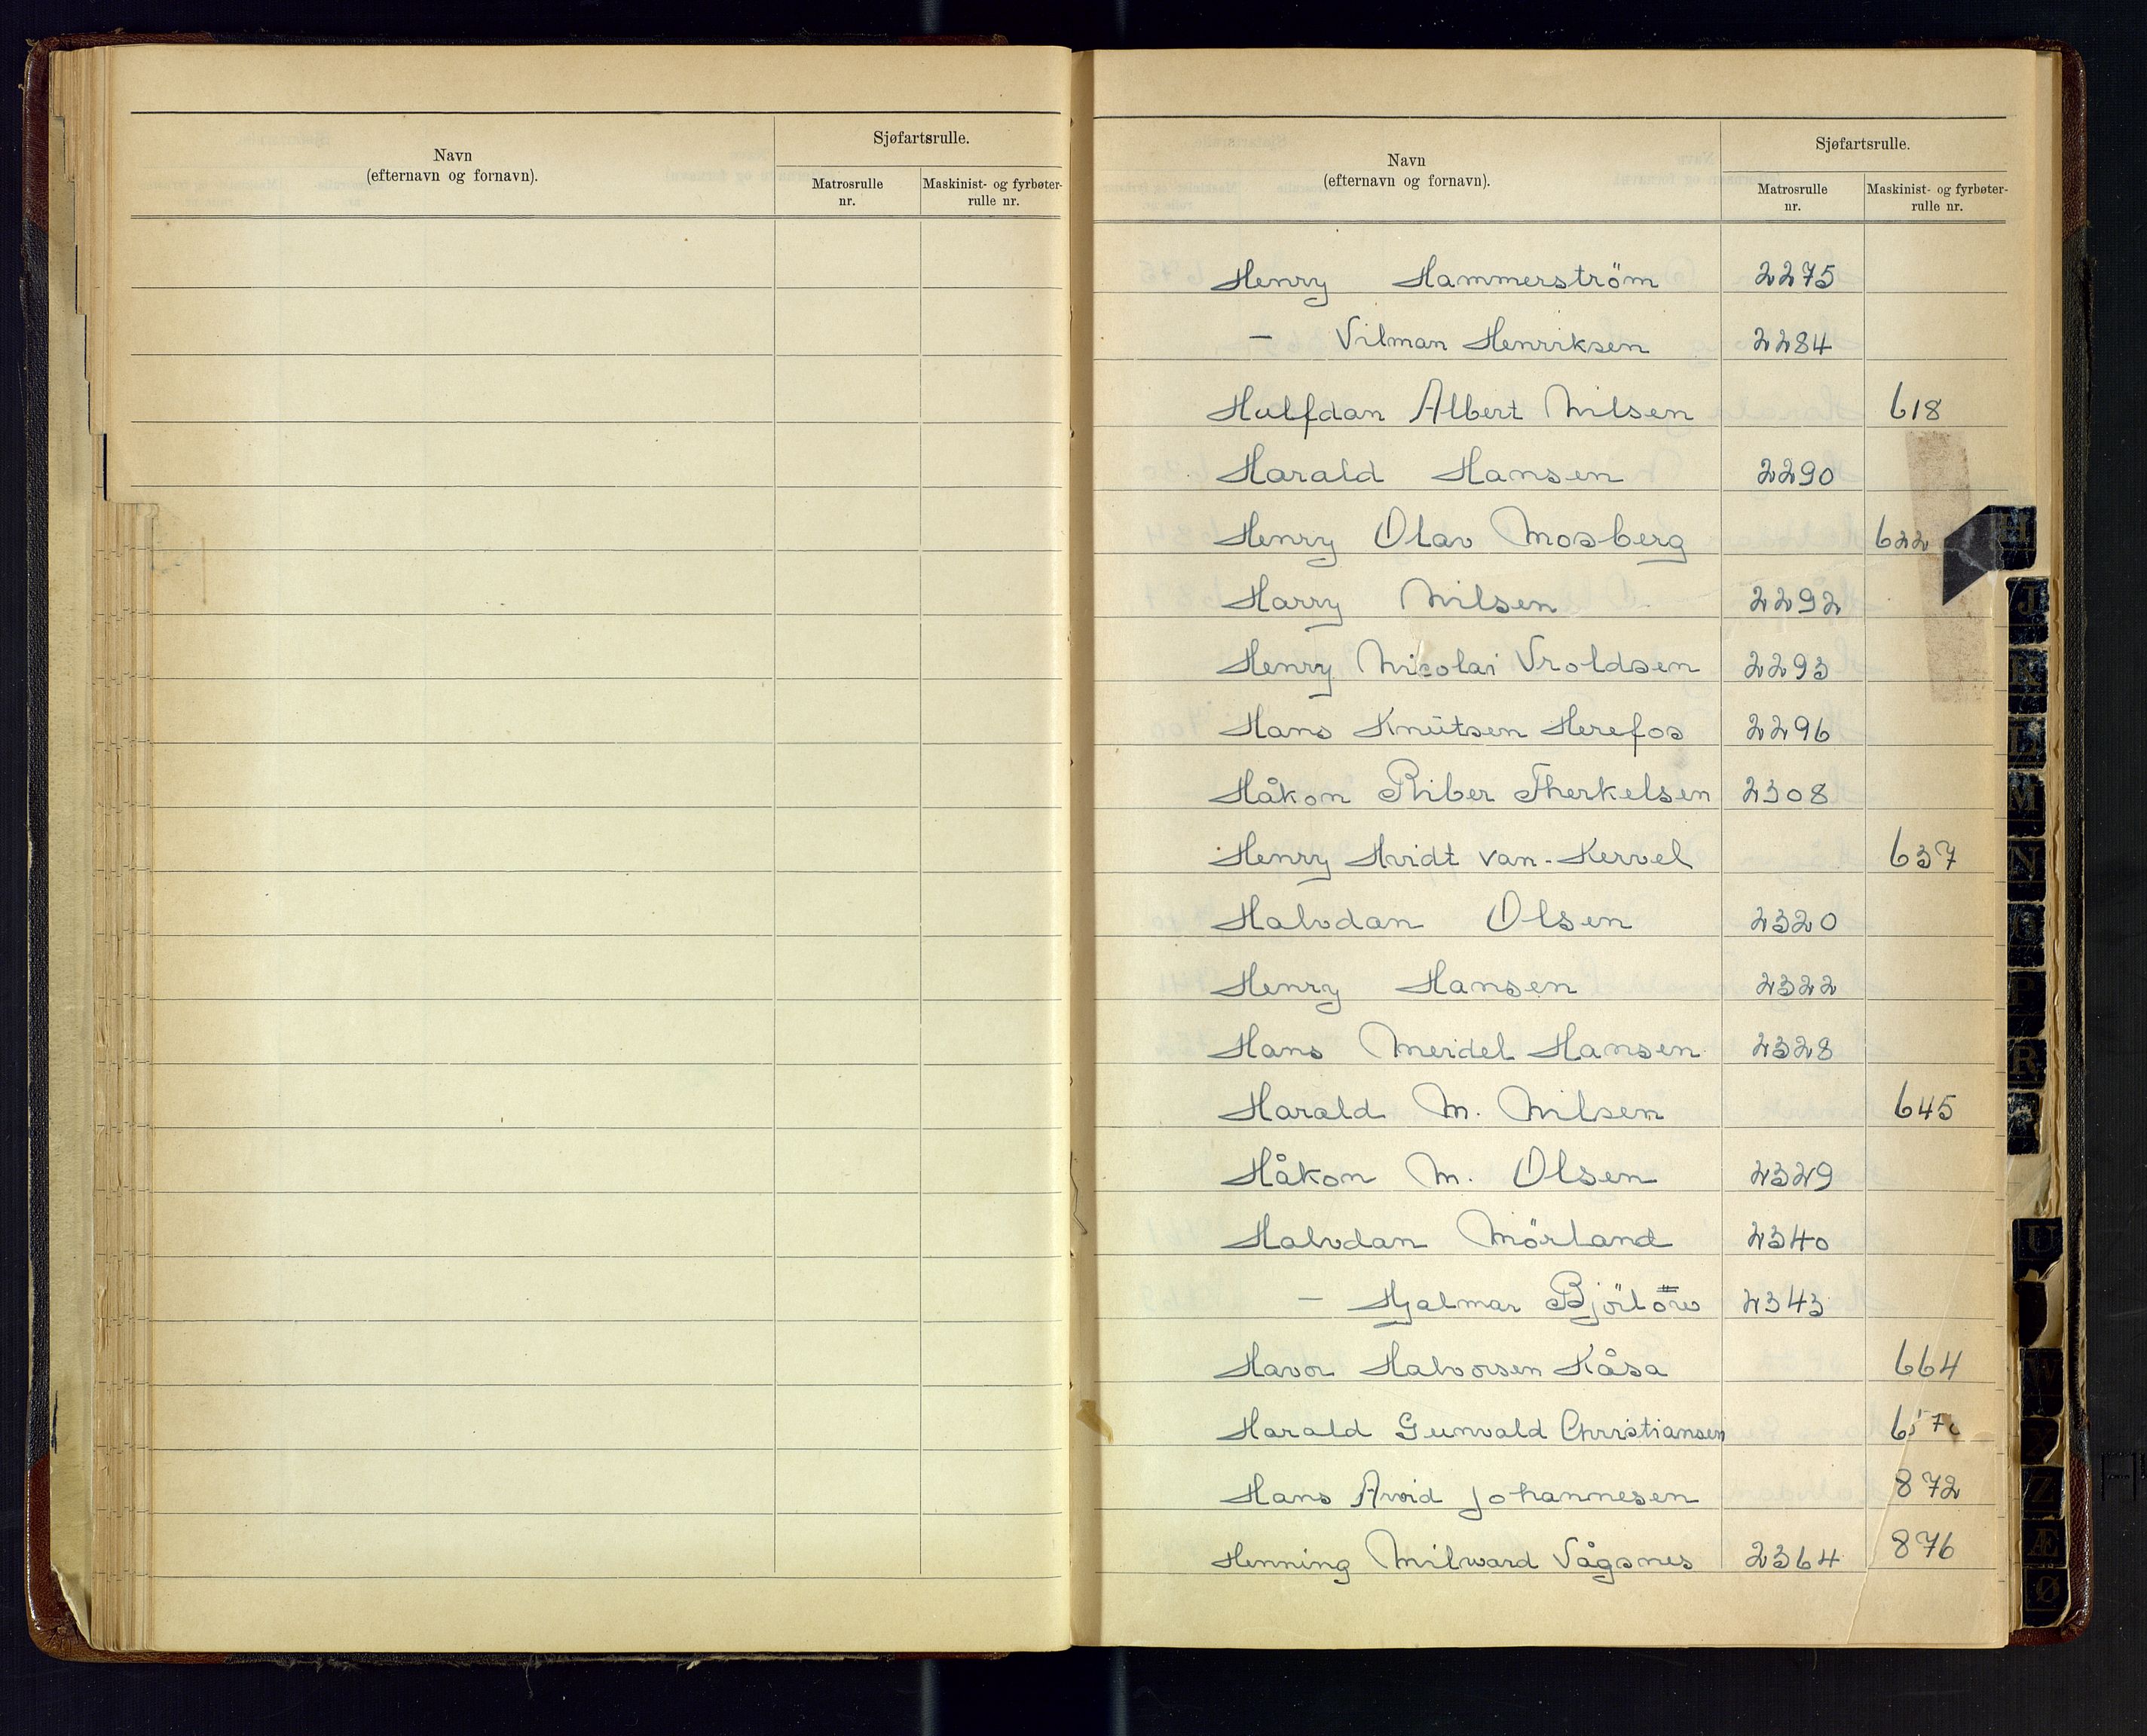 Navn
(efternavn og fornavn).
Sjøfartsrulle.
Matrosrulle
nr.
Maskinist- og fyrbøter-
rulle nr.
Navn
(efternavn og fornavn).
Sjøfartsrulle.
Matrosrulle
nr.
Maskinist- og fyrbøter-
rulle nr.
Henry Hammerström 2275
— Vilman Henriksen 2284
Halfdan Albert Nilsen 618
Harald Hansen 2290
Henry Olav Mosberg 622
Harry Nilsen 2292
Henry Nicolai Vroldsen 2293
Hans Knutsen Herefos 2296
Håkon Riber Therkelsen 2308
Henry Hvidt van-Kervel 637
Halvdan Olsen 2320
Henry Hansen 2322
Hans Meidel Hansen 2328
Harald M. Nilsen 645
Håkon M. Olsen 2329
Halvdan Mörland 2340
— Hjalmar 2343
Havor Halvorsen Kåsa 664
Harald Gunvald Christiansen
Hans Arvid Johannesen 872
Henning Milward Vågsnes 2364 876
H
J
K
L
M
N
O
P
R
U
W
X
Z
Æ
Ø